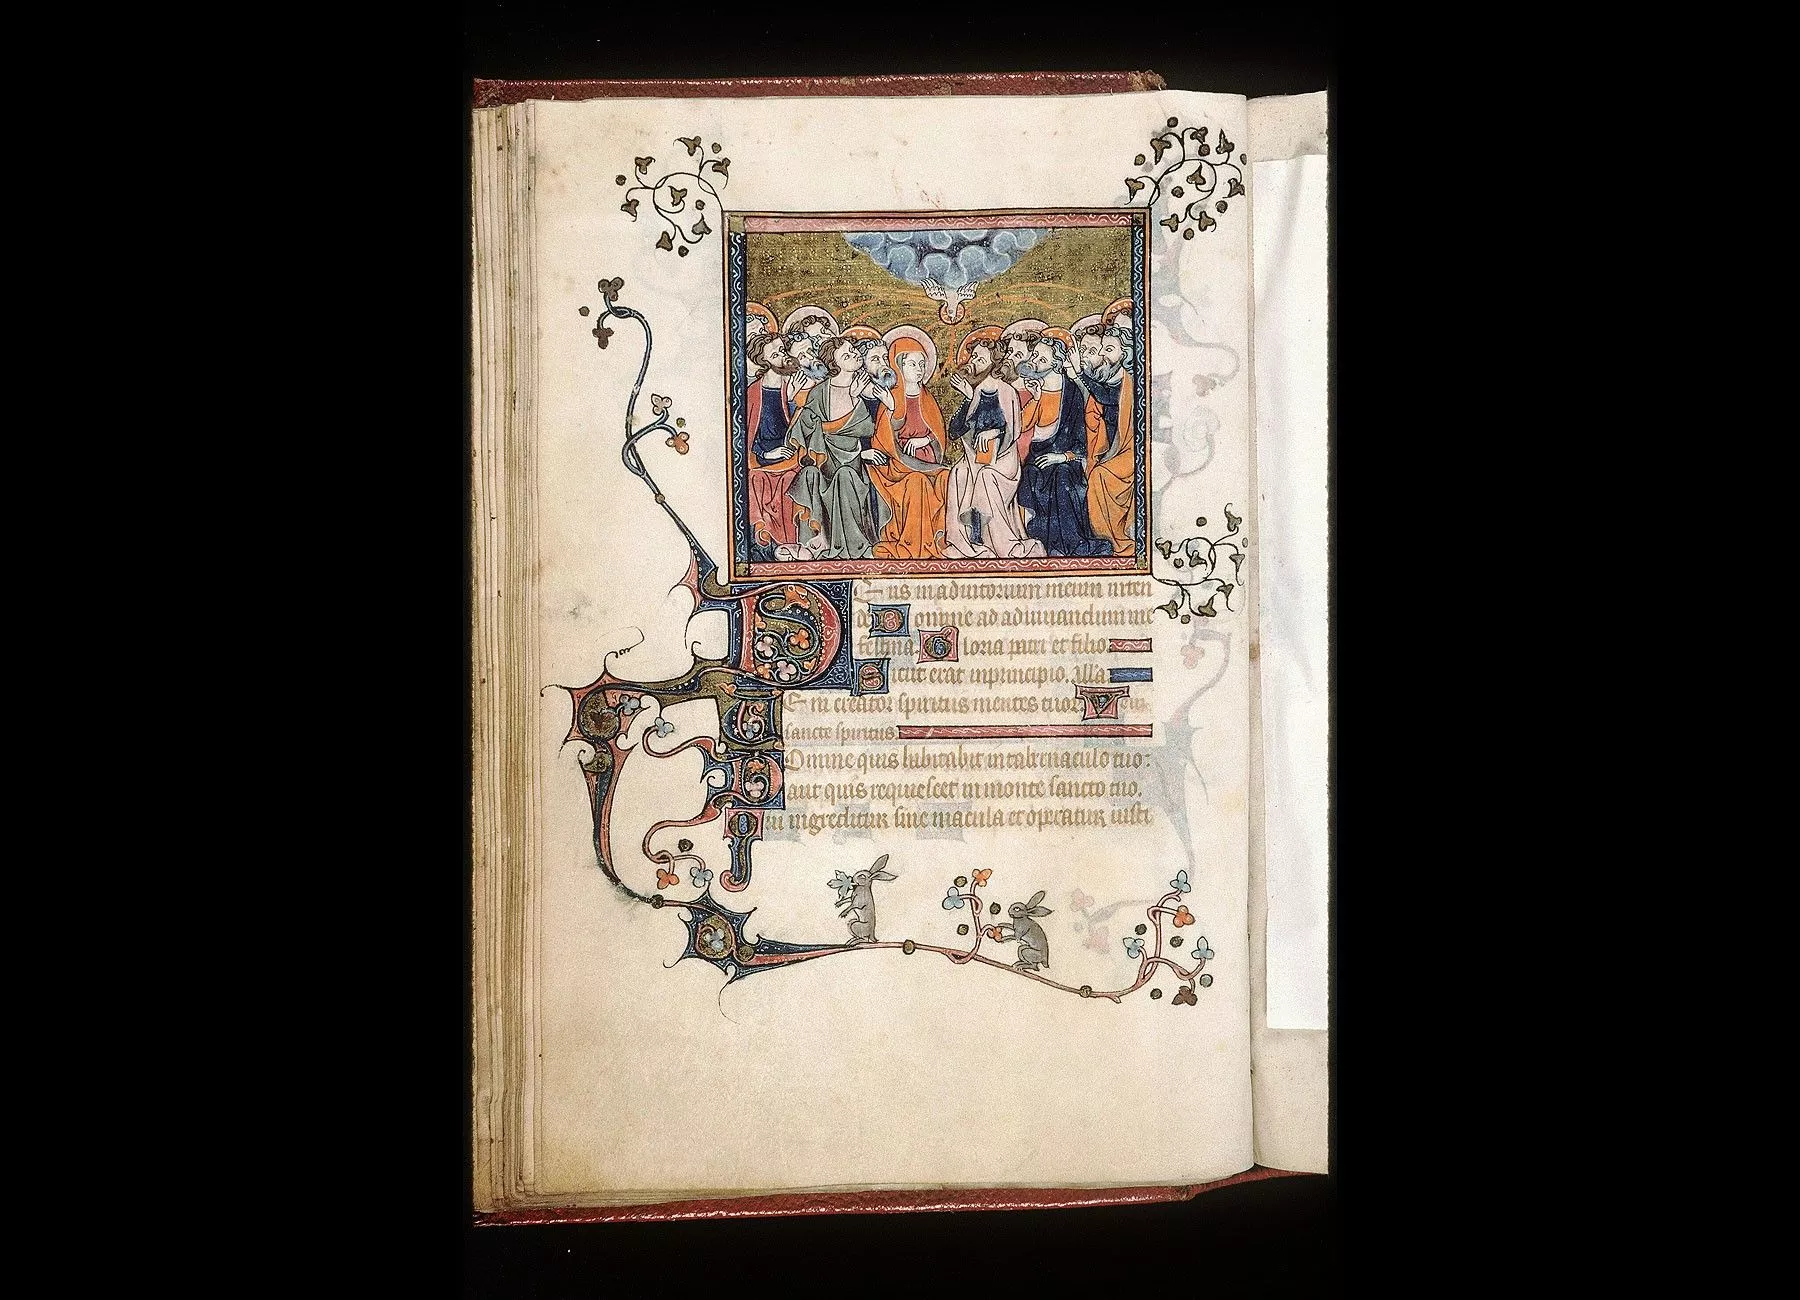 Deus in adiutorium meum inten
de Domine ad adiuuandum me
festina. Gloria patri et filio.
Sicut erat in principio. Alla
Veni creator spiritus mentes tuor. Veni
sancte spiritus.
Domine quis habitabit in tabernaculo tuo:
aut quis requiescet in monte sancto tuo.
Qui ingreditur sine macula et operatur iusti